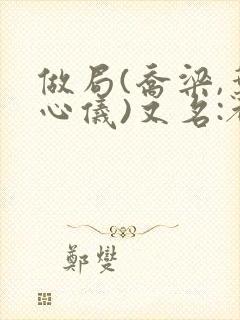 做局(喬梁,
心儀)又名:
鄭燮